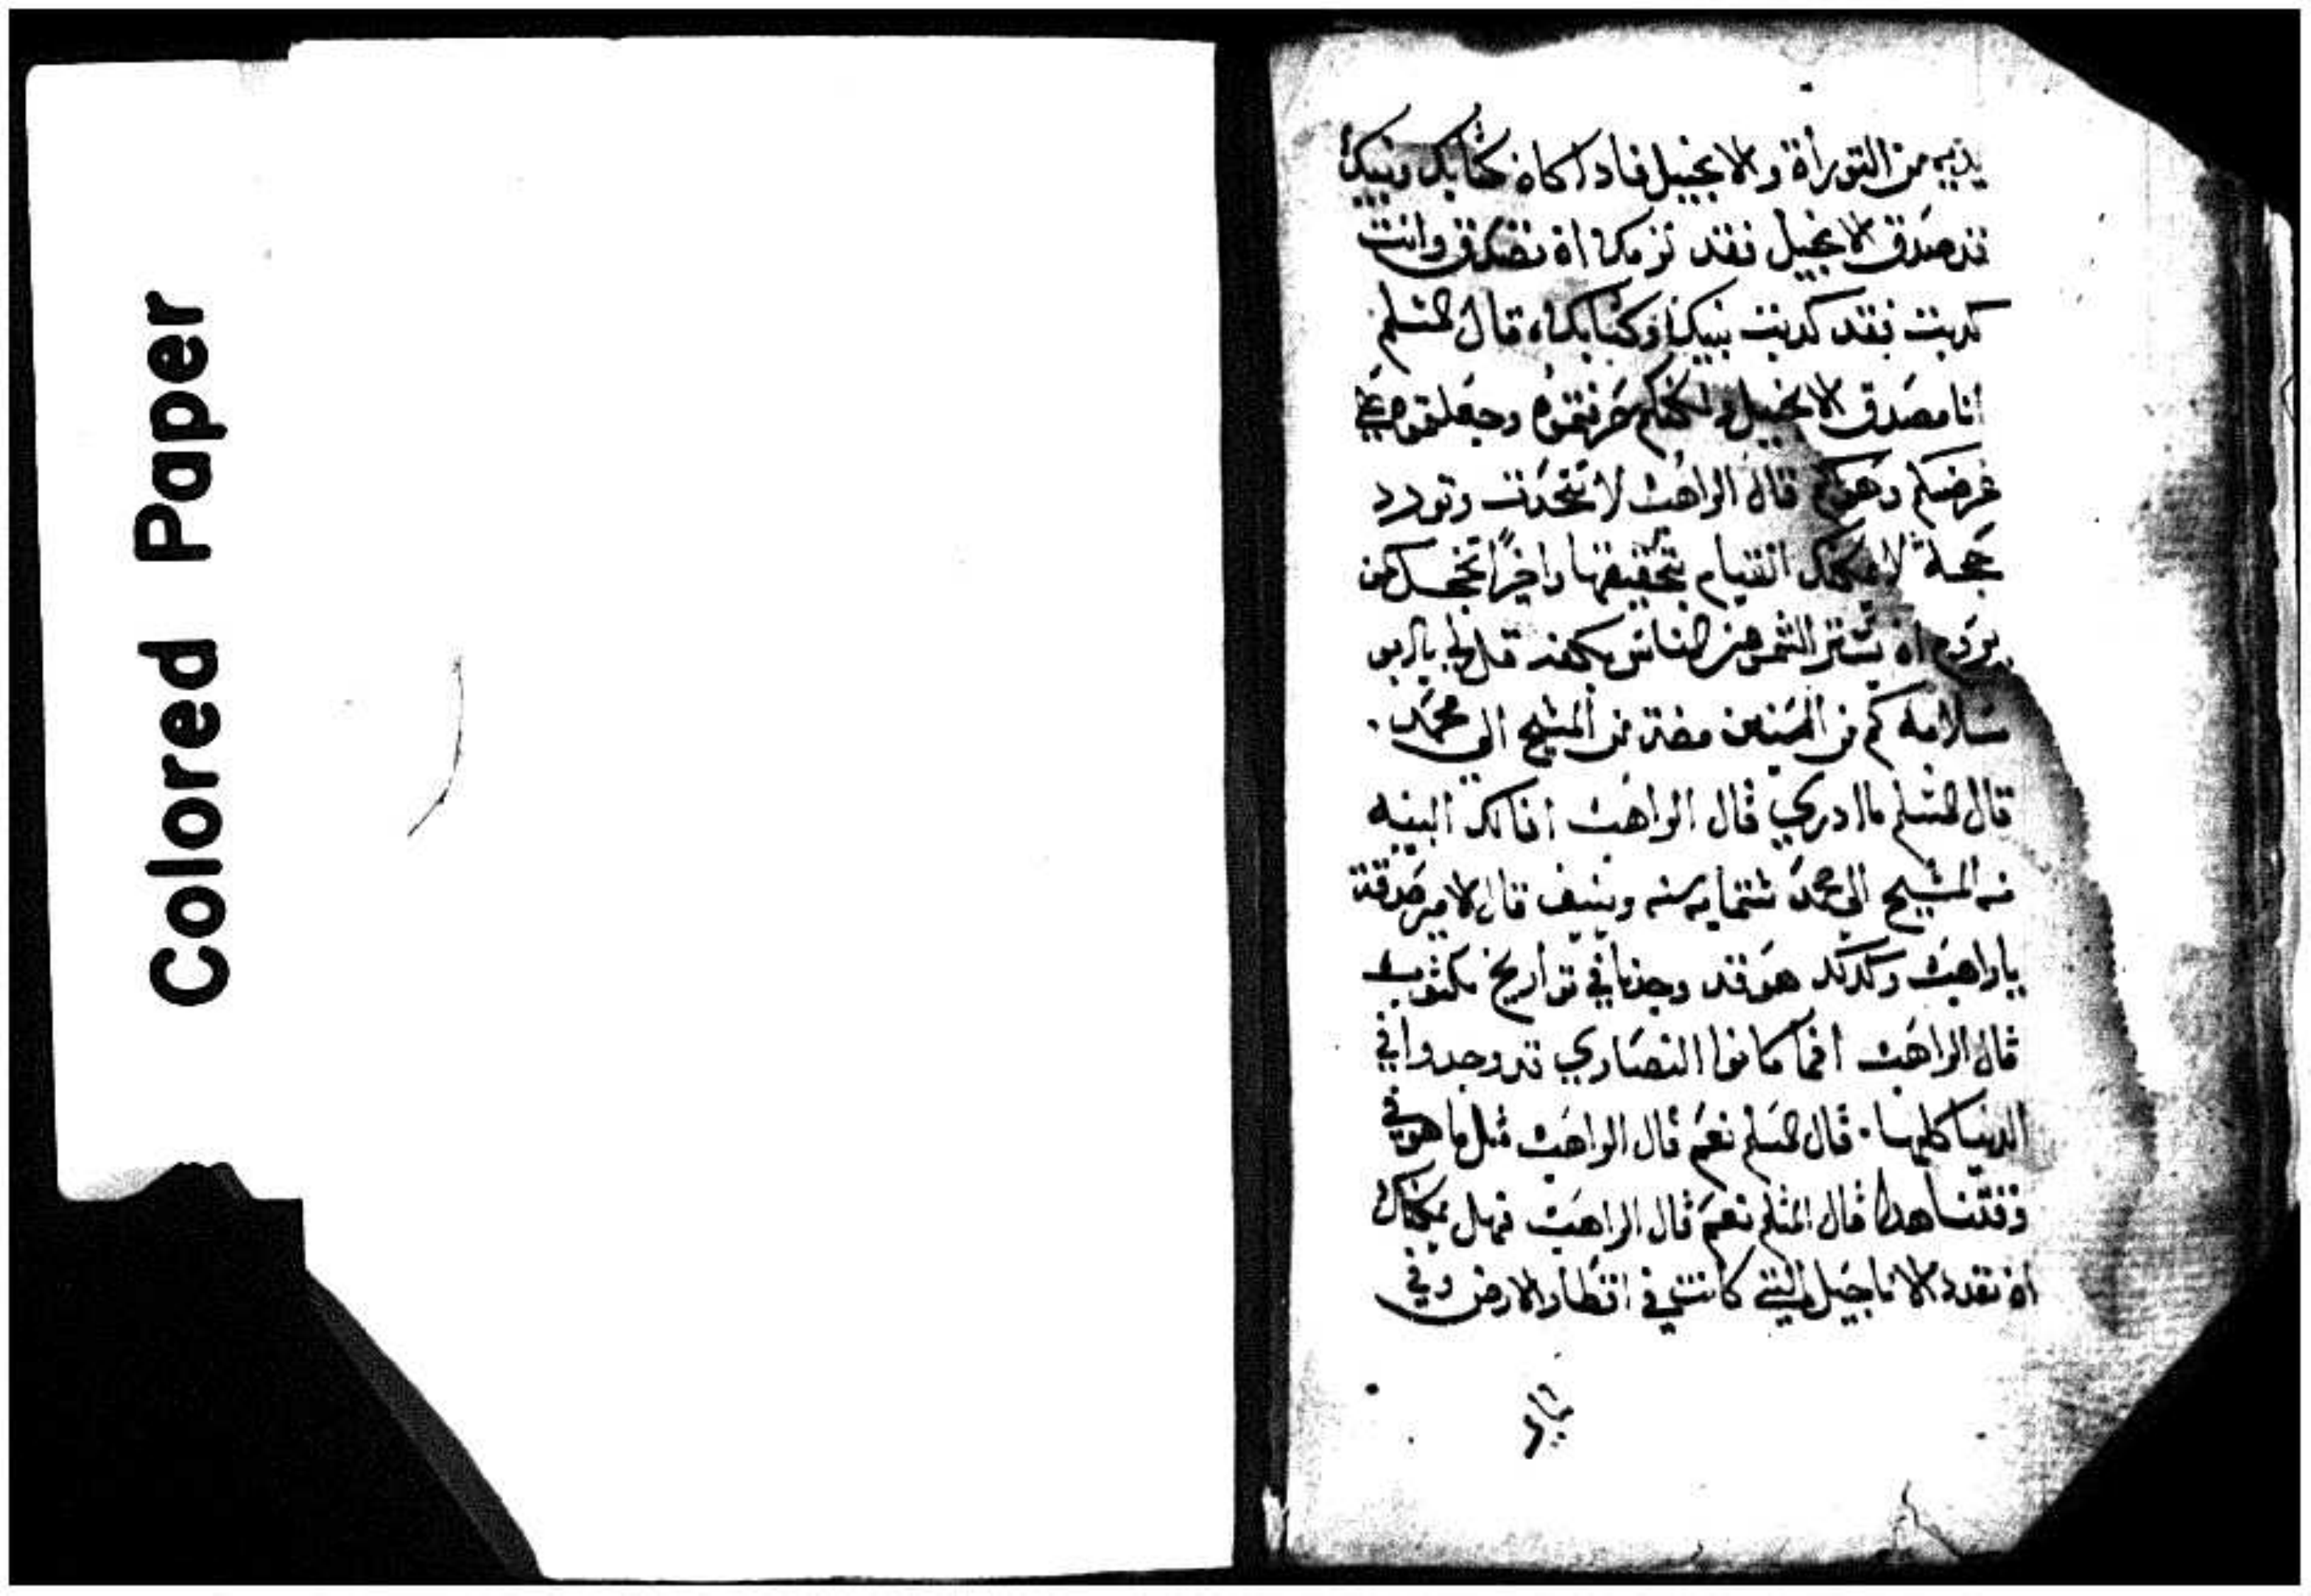 Colored Paper
يديه من التوراة والانجيل فادا كان كتابك ونبيك
قد صدق الانجيل فقد لزمك ان تصدق وانت
كدبت فقد كدبت نبيك وكتابك قال المسلم
انا مصدق الانجيل ولكنكم حرفتموه وجعلتموه علي
غرضكم وهواكم قال الراهب لا تتحدت وتورد
حجة لا يمكنك القيام بتحقيقها واخيرًا تخجل كمن
يروم ان يستر الشمس من الناس بكفه قل لي يا ابو
سلامه كم من السنين مضت من المسيح الي محمد
قال المسلم ما ادري قال الراهب انا لك ابينه
من المسيح الي محمد ستمايه سنه ونيف قال الامير صدقت
يا راهب وكدلك هو قد وجدنا في تواريخ مكتوب
قال الراهب افما كانوا النصاري قد وجدوا في
الدنيا كلها قال المسلم نعم قال الراهب مثل ما هو في
وقتنا هدا قال المسلم نعم قال الراهب فهل يمكنك
ان تعدد الاناجيل التي كانت في اقطار الارض وفي